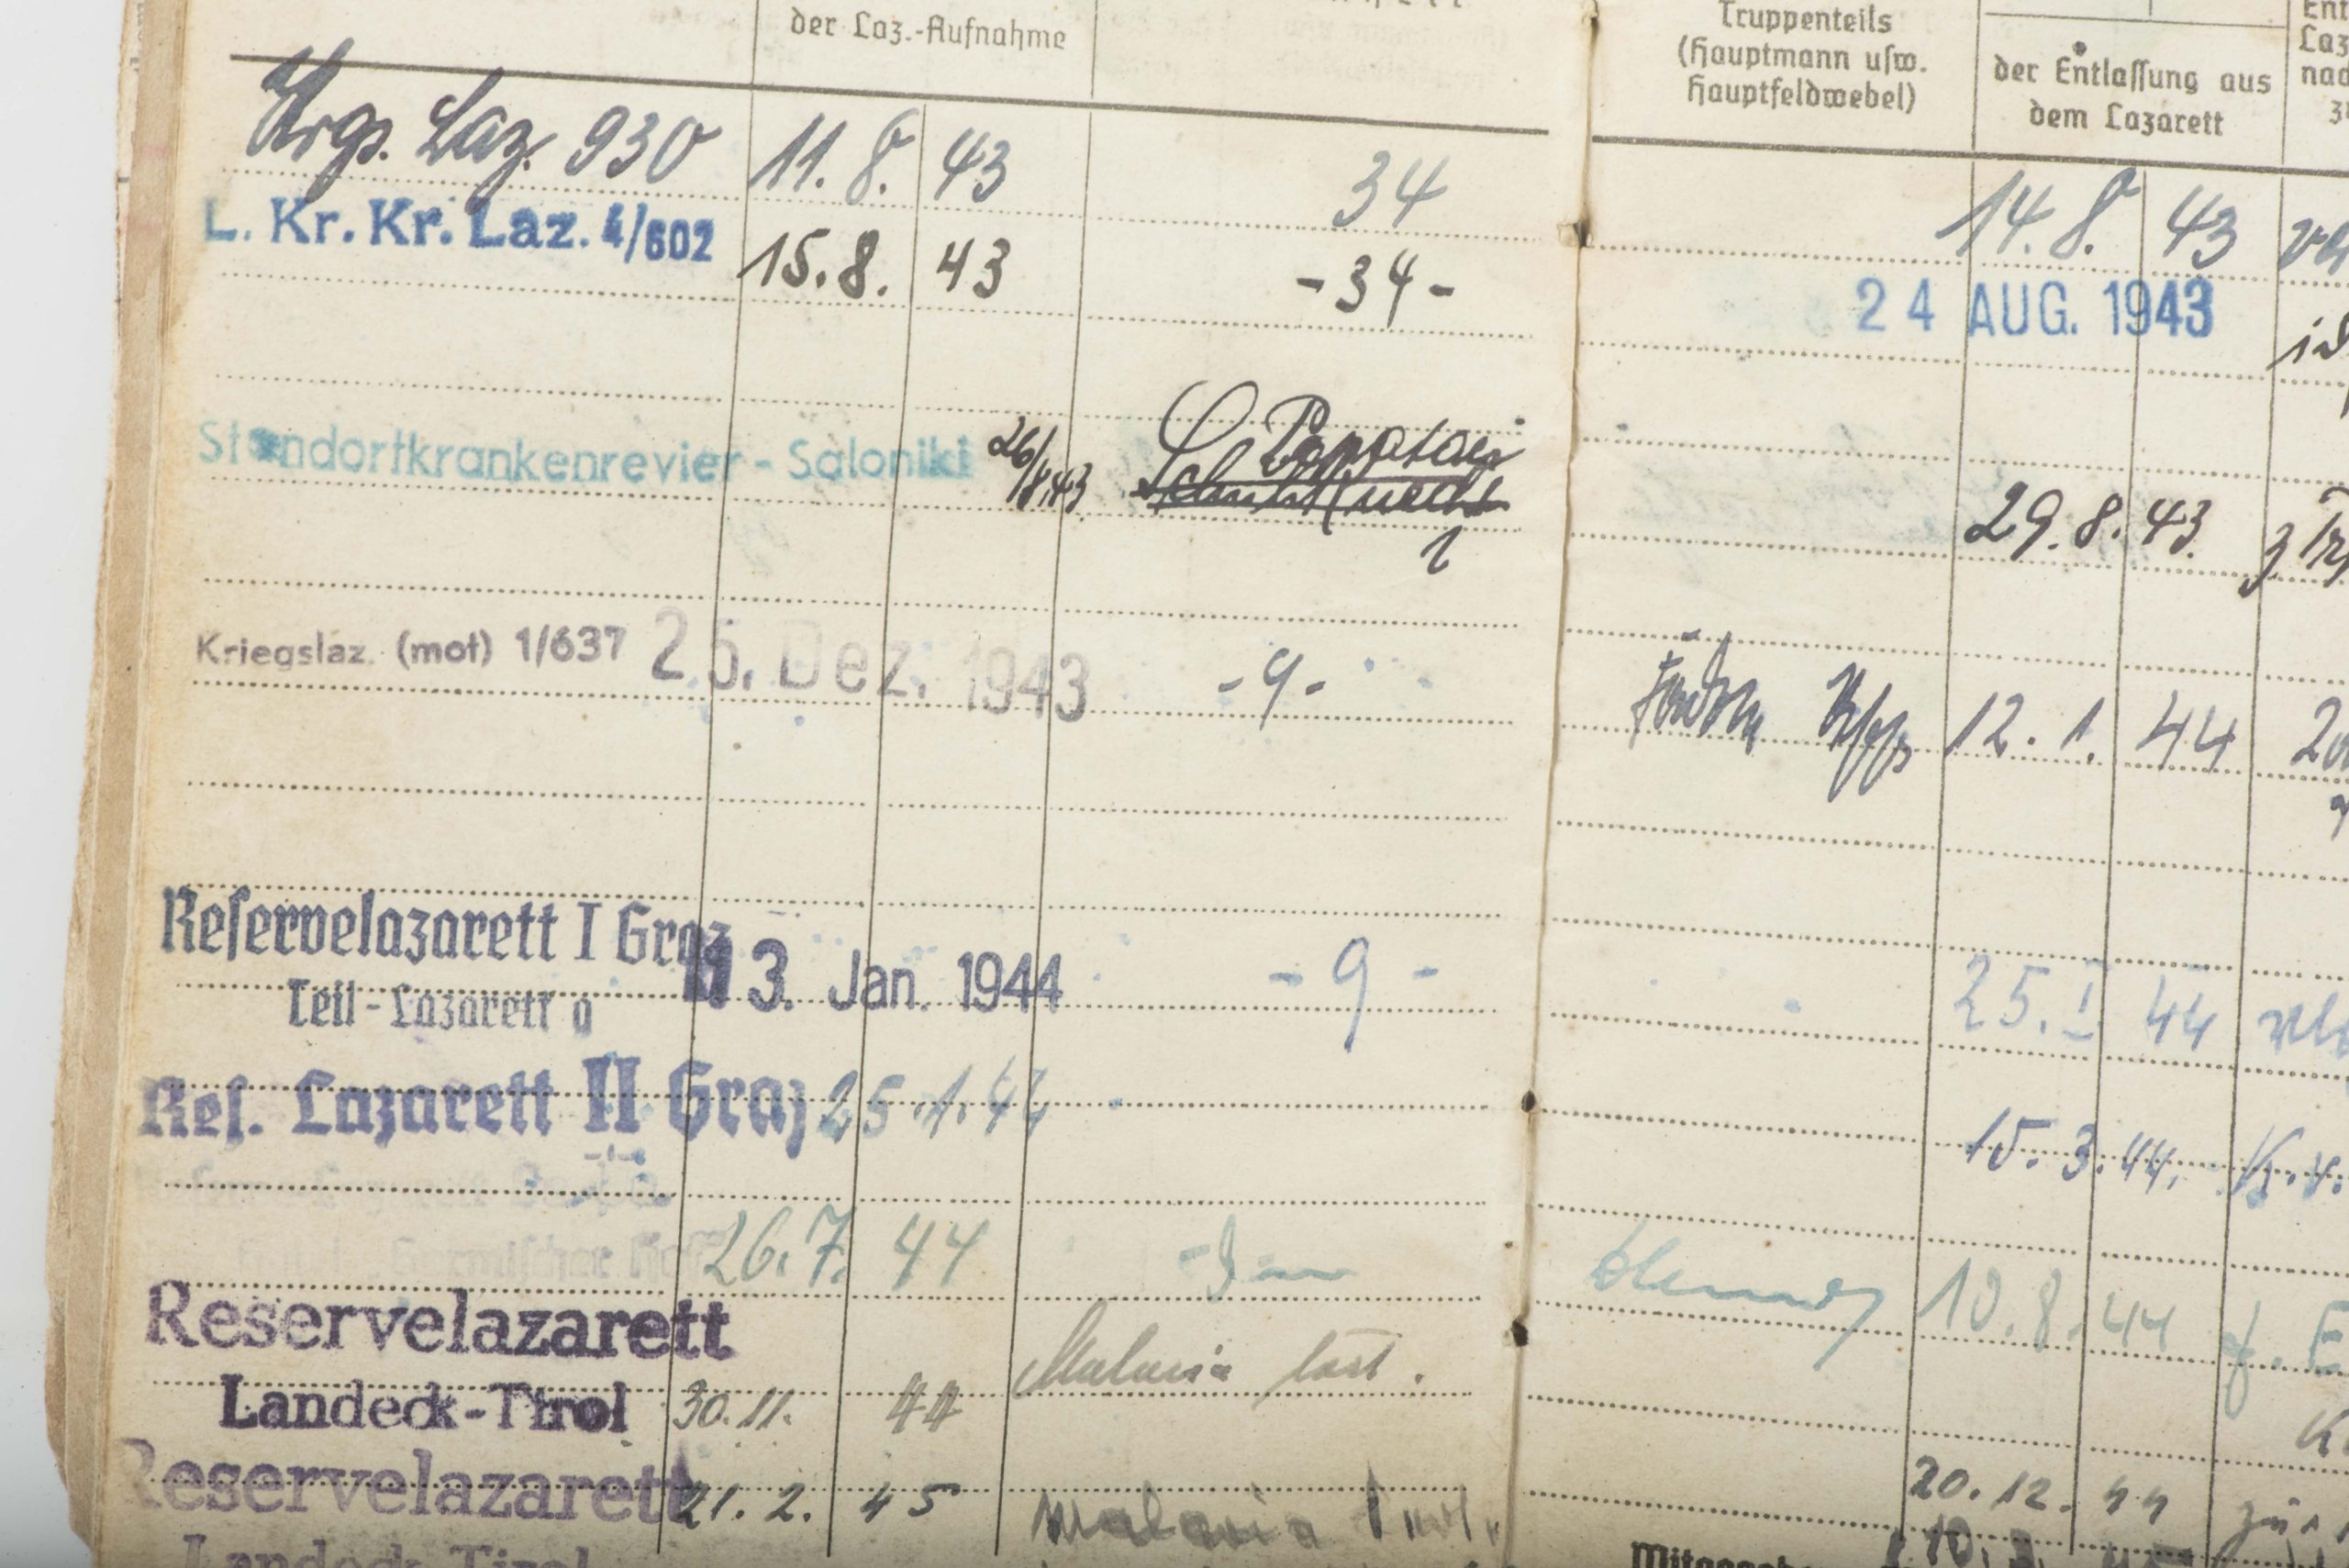 der Laz.-Aufnahme
Krgs. Laz. 930 11. 8. 43 34
L. Kr. Kr. Laz. 4/602 15. 8. 43 -34-
Standortkrankenrevier - Saloniki 26/8.43
Kriegslaz. (mot) 1/637 25. Dez. 1943 -9-
Reservelazarett I Graz 13. Jan. 1944 -9-
Teil-Lazarett a
Res. Lazarett II Graz 25.1.44
26. 7. 44
Reservelazarett
Landeck-Tirol 30. 11. 44 Malaria tert.
Reservelazarett 21. 2. 45 Malaria
Landeck-Tirol
Truppenteils
(Hauptmann usw.
Hauptfeldwebel)
der Entlassung aus
dem Lazarett
Ent
Laz
nac
14. 8. 43
24 AUG. 1943
29. 8. 43
12. 1. 44
25. I 44
15. 3. 44.
10. 8. 44
20. 12. 44